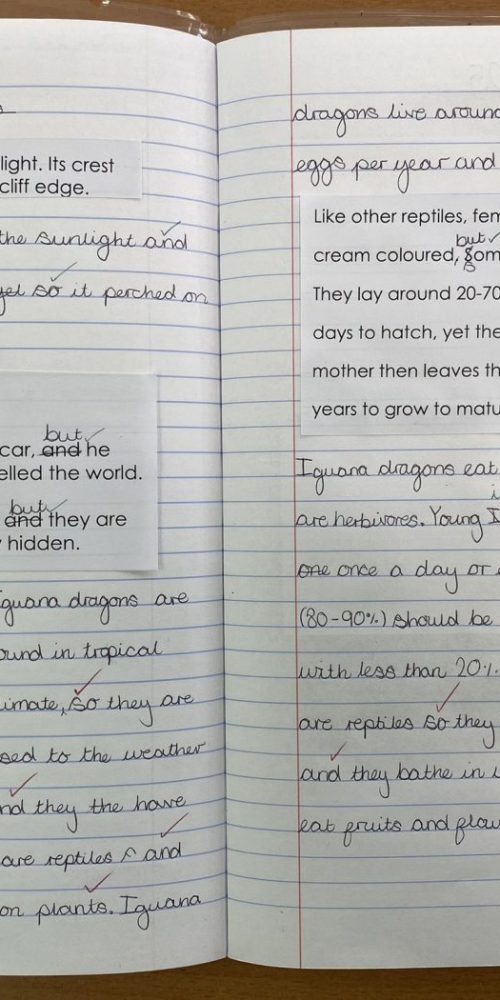 light. Its crest
cliff edge.
the sunlight and
so it perched on
but
car, and he
elled the world.
but
and they are
hidden.
Iguana dragons are
ound in tropical
limate, so they are
sed to the weather
and they the have
are reptiles ^ and
on plants. Iguana
dragons live around
eggs per year and
Like other reptiles, fem
but
cream coloured, Som
They lay around 20-70
days to hatch, yet the
mother then leaves th
years to grow to matu
Iguana dragons eat
i
are herbivores. Young I
one once a day or
(80-90%) should be
with less than 20%.
are reptiles so they
and they bathe in
eat fruits and flow